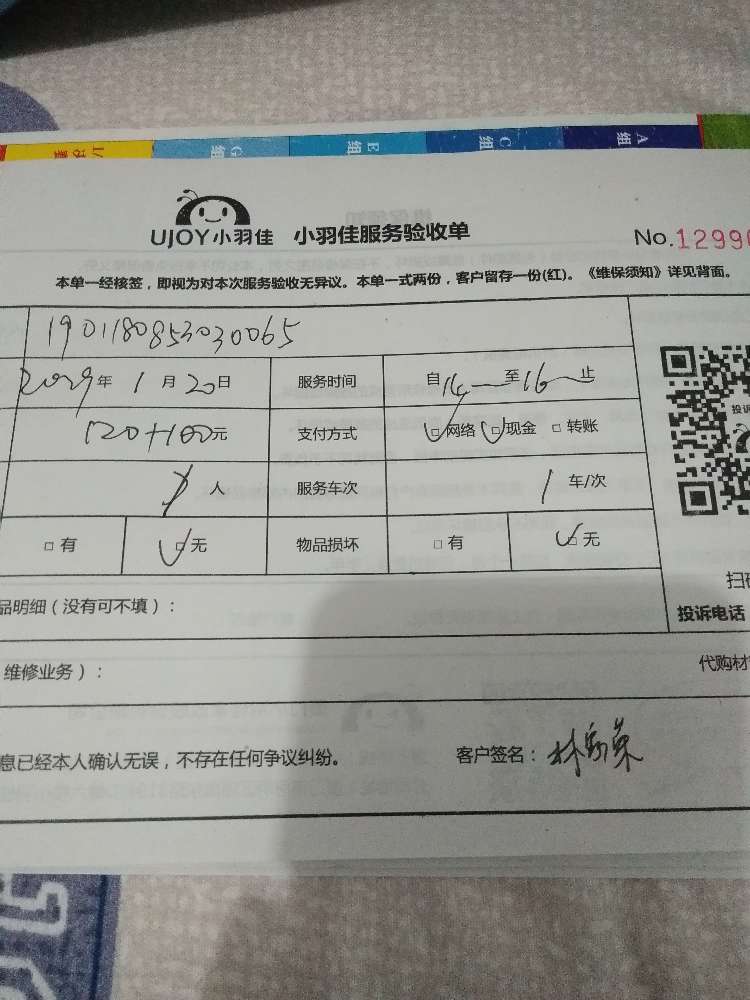 UJOY小羽佳 小羽佳服务验收单 No.1299
本单一经核签，即视为对本次服务验收无异议。本单一式两份，客户留存一份(红)。《维保须知》详见背面。
1901180853030065
2019年1月20日 服务时间 自14至16止
120+100元 支付方式 网络 现金 转账
人 服务车次 1车/次
有 无 物品损坏 有 无
扫
品明细（没有可不填）： 投诉电话
维修业务）： 代购材
息已经本人确认无误，不存在任何争议纠纷。 客户签名：